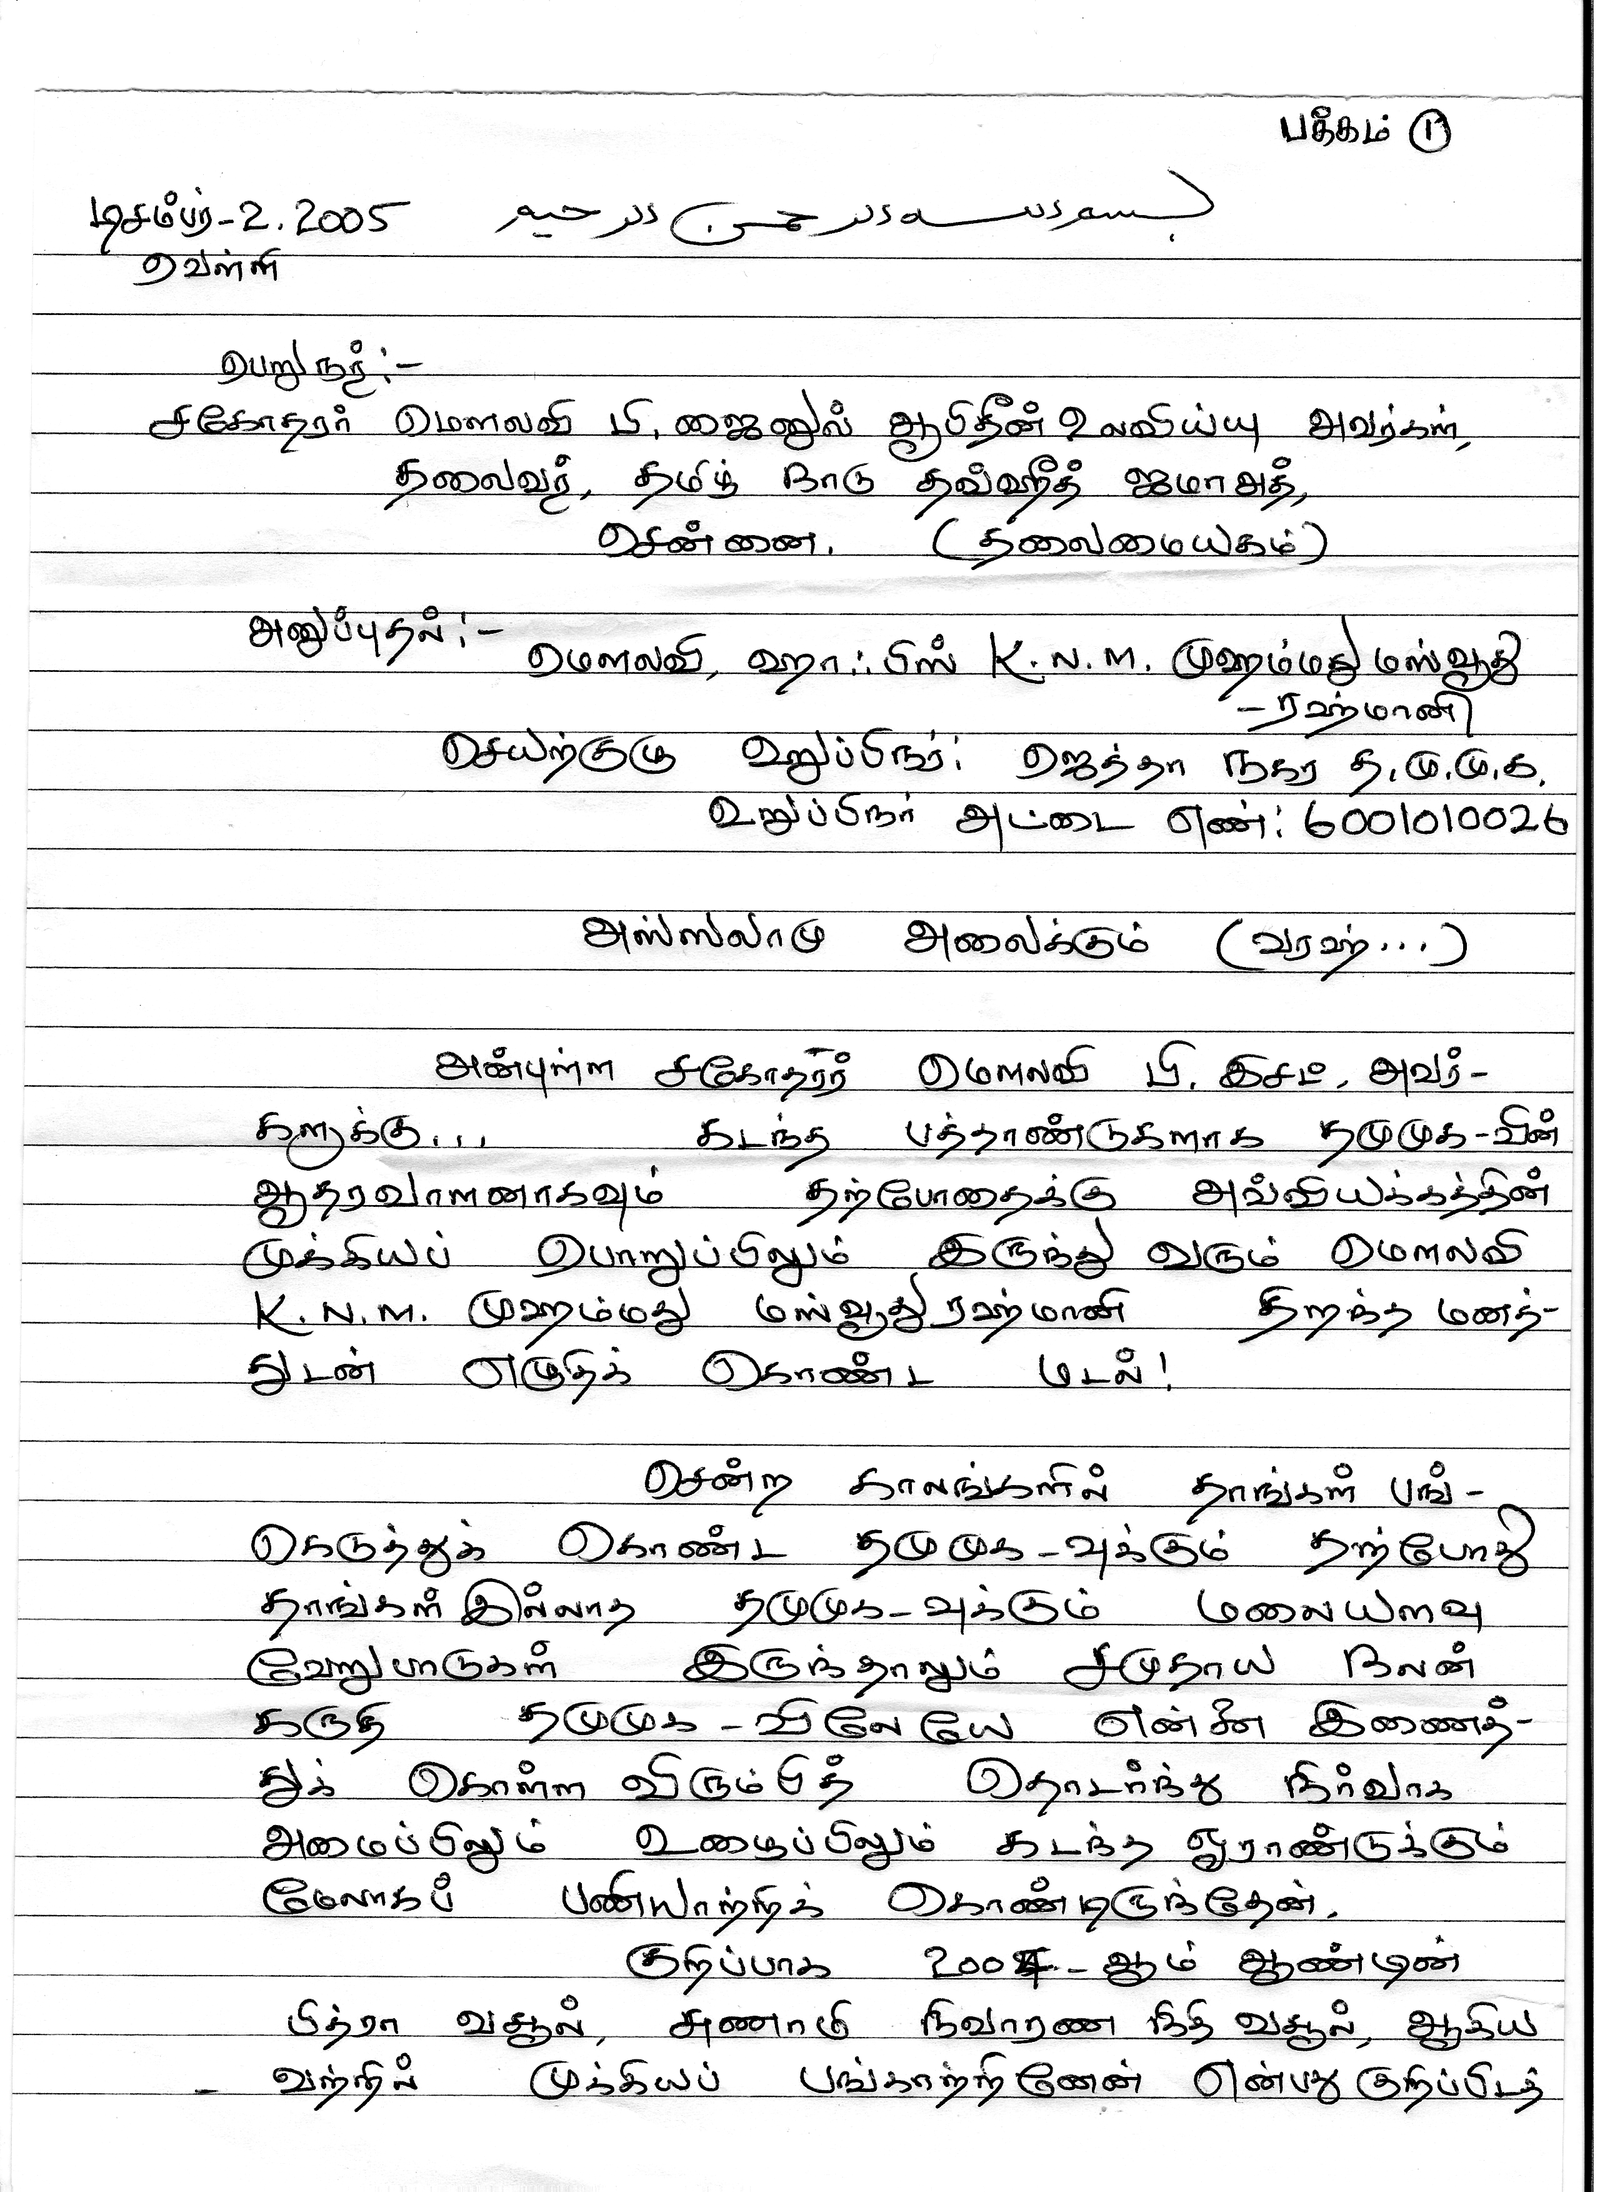 பக்கம் ①
டிசம்பர்-2.2005 بسم الله الرحمن الرحيم
வெள்ளி
பெறுநர்:-
சகோதரர் மௌலவி பி. ஜைனுல் ஆபிதீன் உலவிய்யு அவர்கள்,
தலைவர், தமிழ் நாடு தவ்ஹீத் ஜமாஅத்,
சென்னை. (தலைமையகம்)
அனுப்புதல்:-
மௌலவி, ஹாஃபிஸ் K.N.M. முஹம்மது மஸ்வூது
-ரஹ்மானி
செயற்குழு உறுப்பினர்: ஜெத்தா நகர த.மு.மு.க.
உறுப்பினர் அட்டை எண்: 6001010026
அஸ்ஸலாமு அலைக்கும் (வரஹ்...)
அன்புள்ள சகோதரர் மௌலவி பி. இசட். அவர்-
களுக்கு... கடந்த பத்தாண்டுகளாக தமுமுக-வின்
ஆதரவாளனாகவும் தற்போதைக்கு அவ்வியக்கத்தின்
முக்கியப் பொறுப்பிலும் இருந்து வரும் மௌலவி
K.N.M. முஹம்மது மஸ்வூது ரஹ்மானி திறந்த மனத்-
துடன் எழுதிக் கொண்ட மடல்!
சென்ற காலங்களில் தாங்கள் பங்-
கெடுத்துக் கொண்ட தமுமுக-வுக்கும் தற்போது
தாங்கள் இல்லாத தமுமுக-வுக்கும் மலையளவு
வேறுபாடுகள் இருந்தாலும் சமுதாய நலன்
கருதி தமுமுக-விலேயே என்னை இணைத்-
துக் கொள்ள விரும்பித் தொடர்ந்து நிர்வாக
அமைப்பிலும் உழைப்பிலும் கடந்த ஓராண்டுக்கும்
மேலாகப் பணியாற்றிக் கொண்டிருந்தேன்.
குறிப்பாக 2004-ஆம் ஆண்டின்
பித்ரா வசூல், சுனாமி நிவாரண நிதி வசூல், ஆகிய
-வற்றில் முக்கியப் பங்காற்றினேன் என்பது குறிப்பிடத்